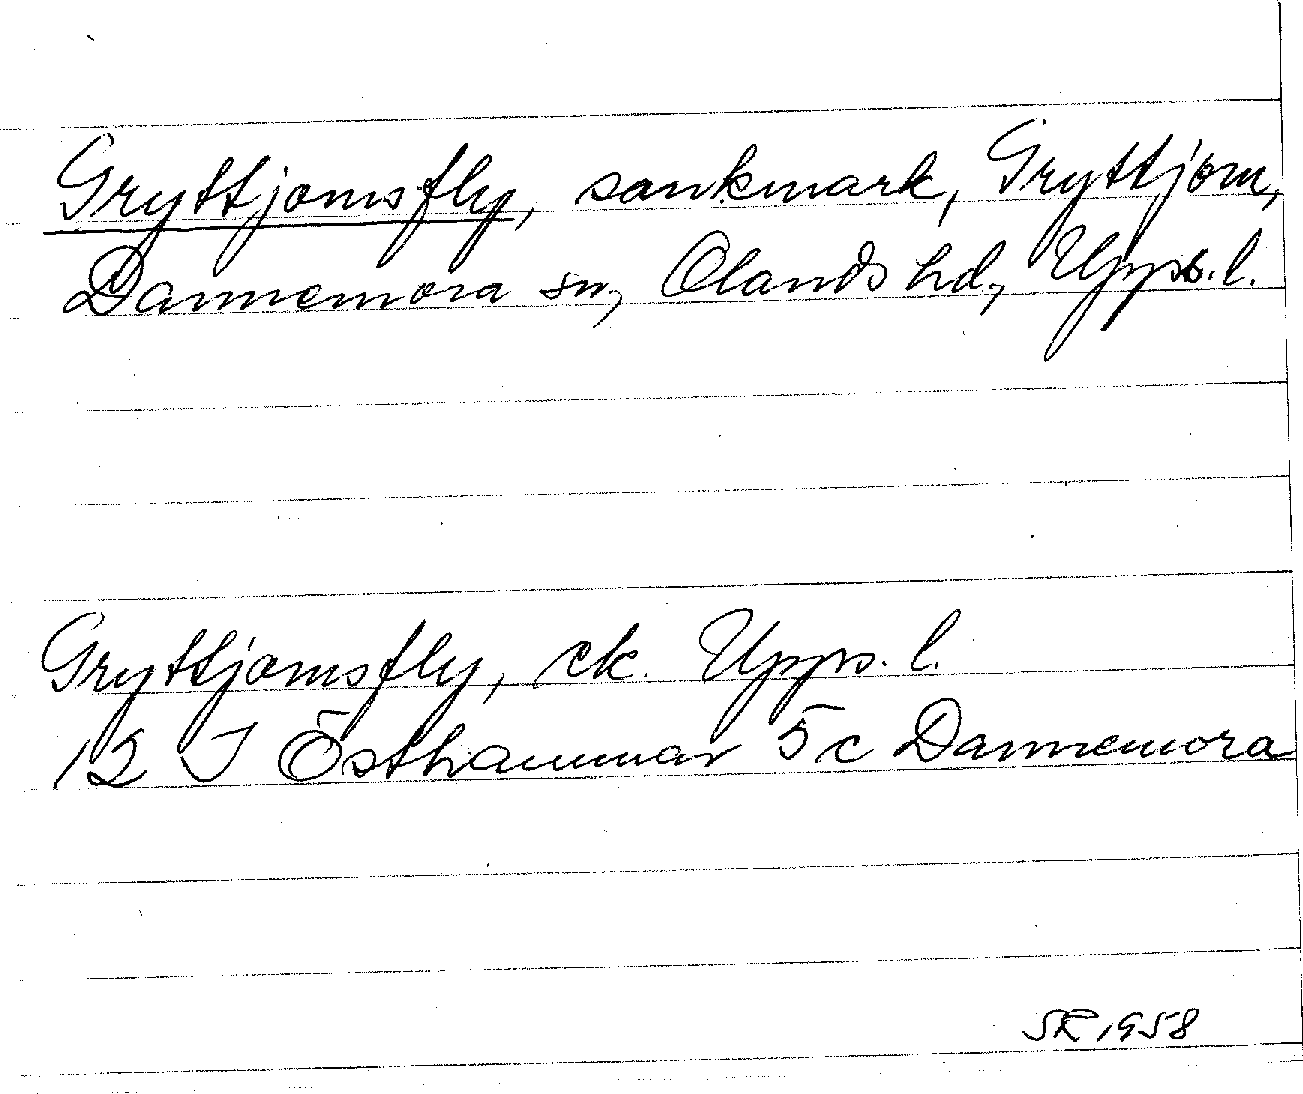 Gryttjomsfly, sankmark, Gryttjom,
Dannemora sn, Olands hd, Upps. l.
Gryttjomsfly, ek. Upps. l.
12 I Östhammar 5c Dannemora
SR 1958